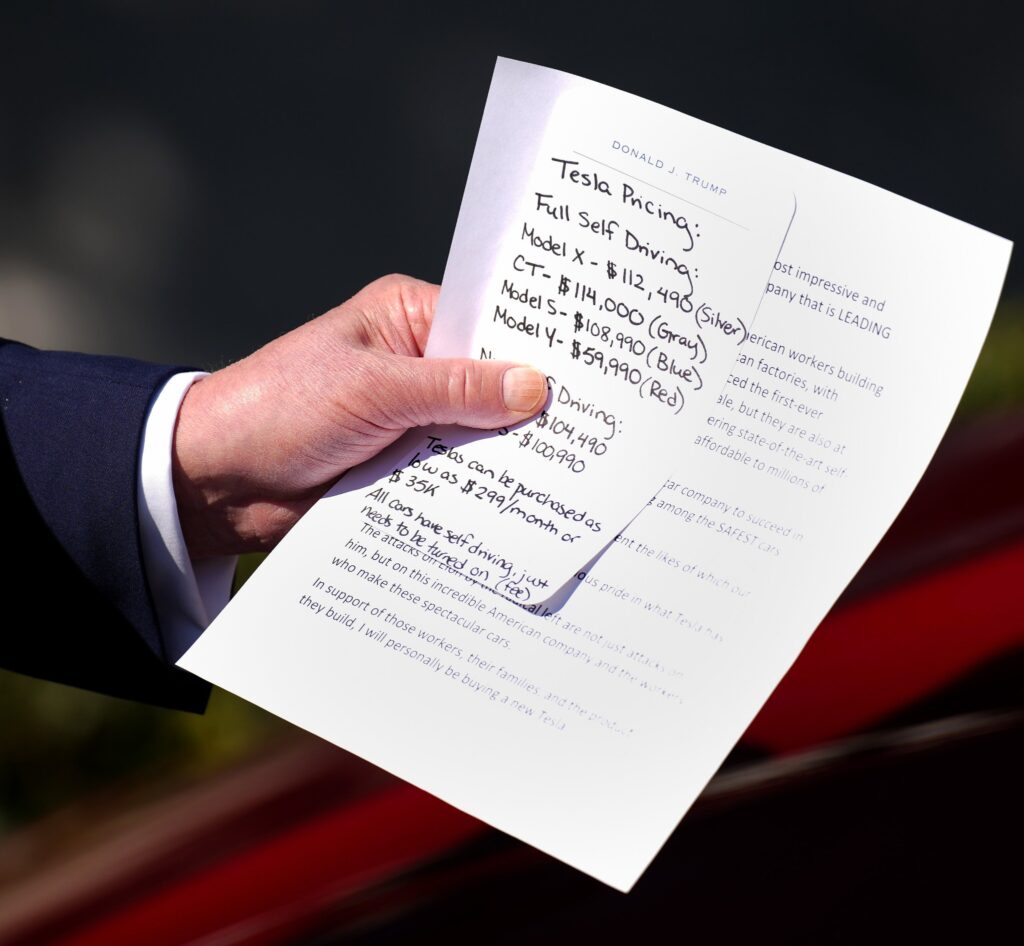 DONALD J. TRUMP
Tesla Pricing:
Full Self Driving:
Model X - $112,490 (Silver)
CT - $114,000 (Gray)
Model S - $108,990 (Blue)
Model Y - $59,990 (Red)
Driving:
$104,490
- $100,990
Teslas can be purchased as
low as $299/month or
$35K
All cars have self driving, just
needs to be turned on (fee)
impressive and
that is LEADING
workers building
factories, with
the first-ever
but they are also at
state-of-the-art self-
affordable to millions of
company to succeed in
among the SAFEST cars
the likes of which our
pride in what Tesla has
The attacks on Elon by the radical left are not just attacks on
him, but on this incredible American company and the workers
who make these spectacular cars.
In support of those workers, their families, and the product
they build, I will personally be buying a new Tesla